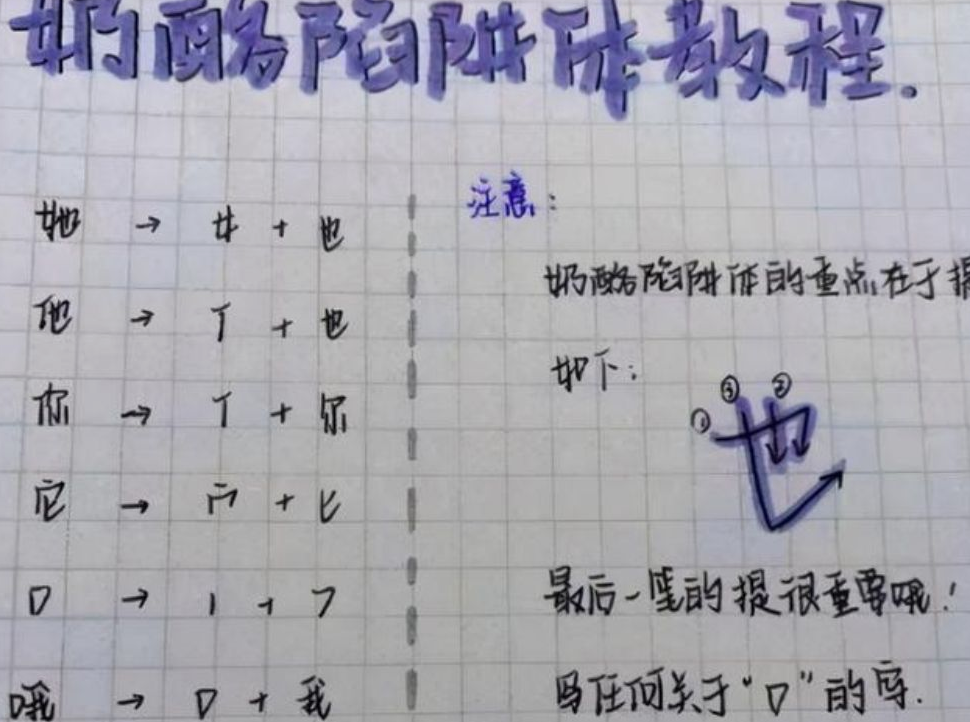 奶酪陷阱体教程.
她 → 女 + 也
他 → 亻 + 也
你 → 亻 + 尔
它 → 宀 + 匕
口 → 丨 + ㄱ
哦 → 口 + 我
注意:
奶酪陷阱体的重点在于提
如下:
① ③ ②
也
最后一笔的提很重要哦!
写任何关于“口”的字.